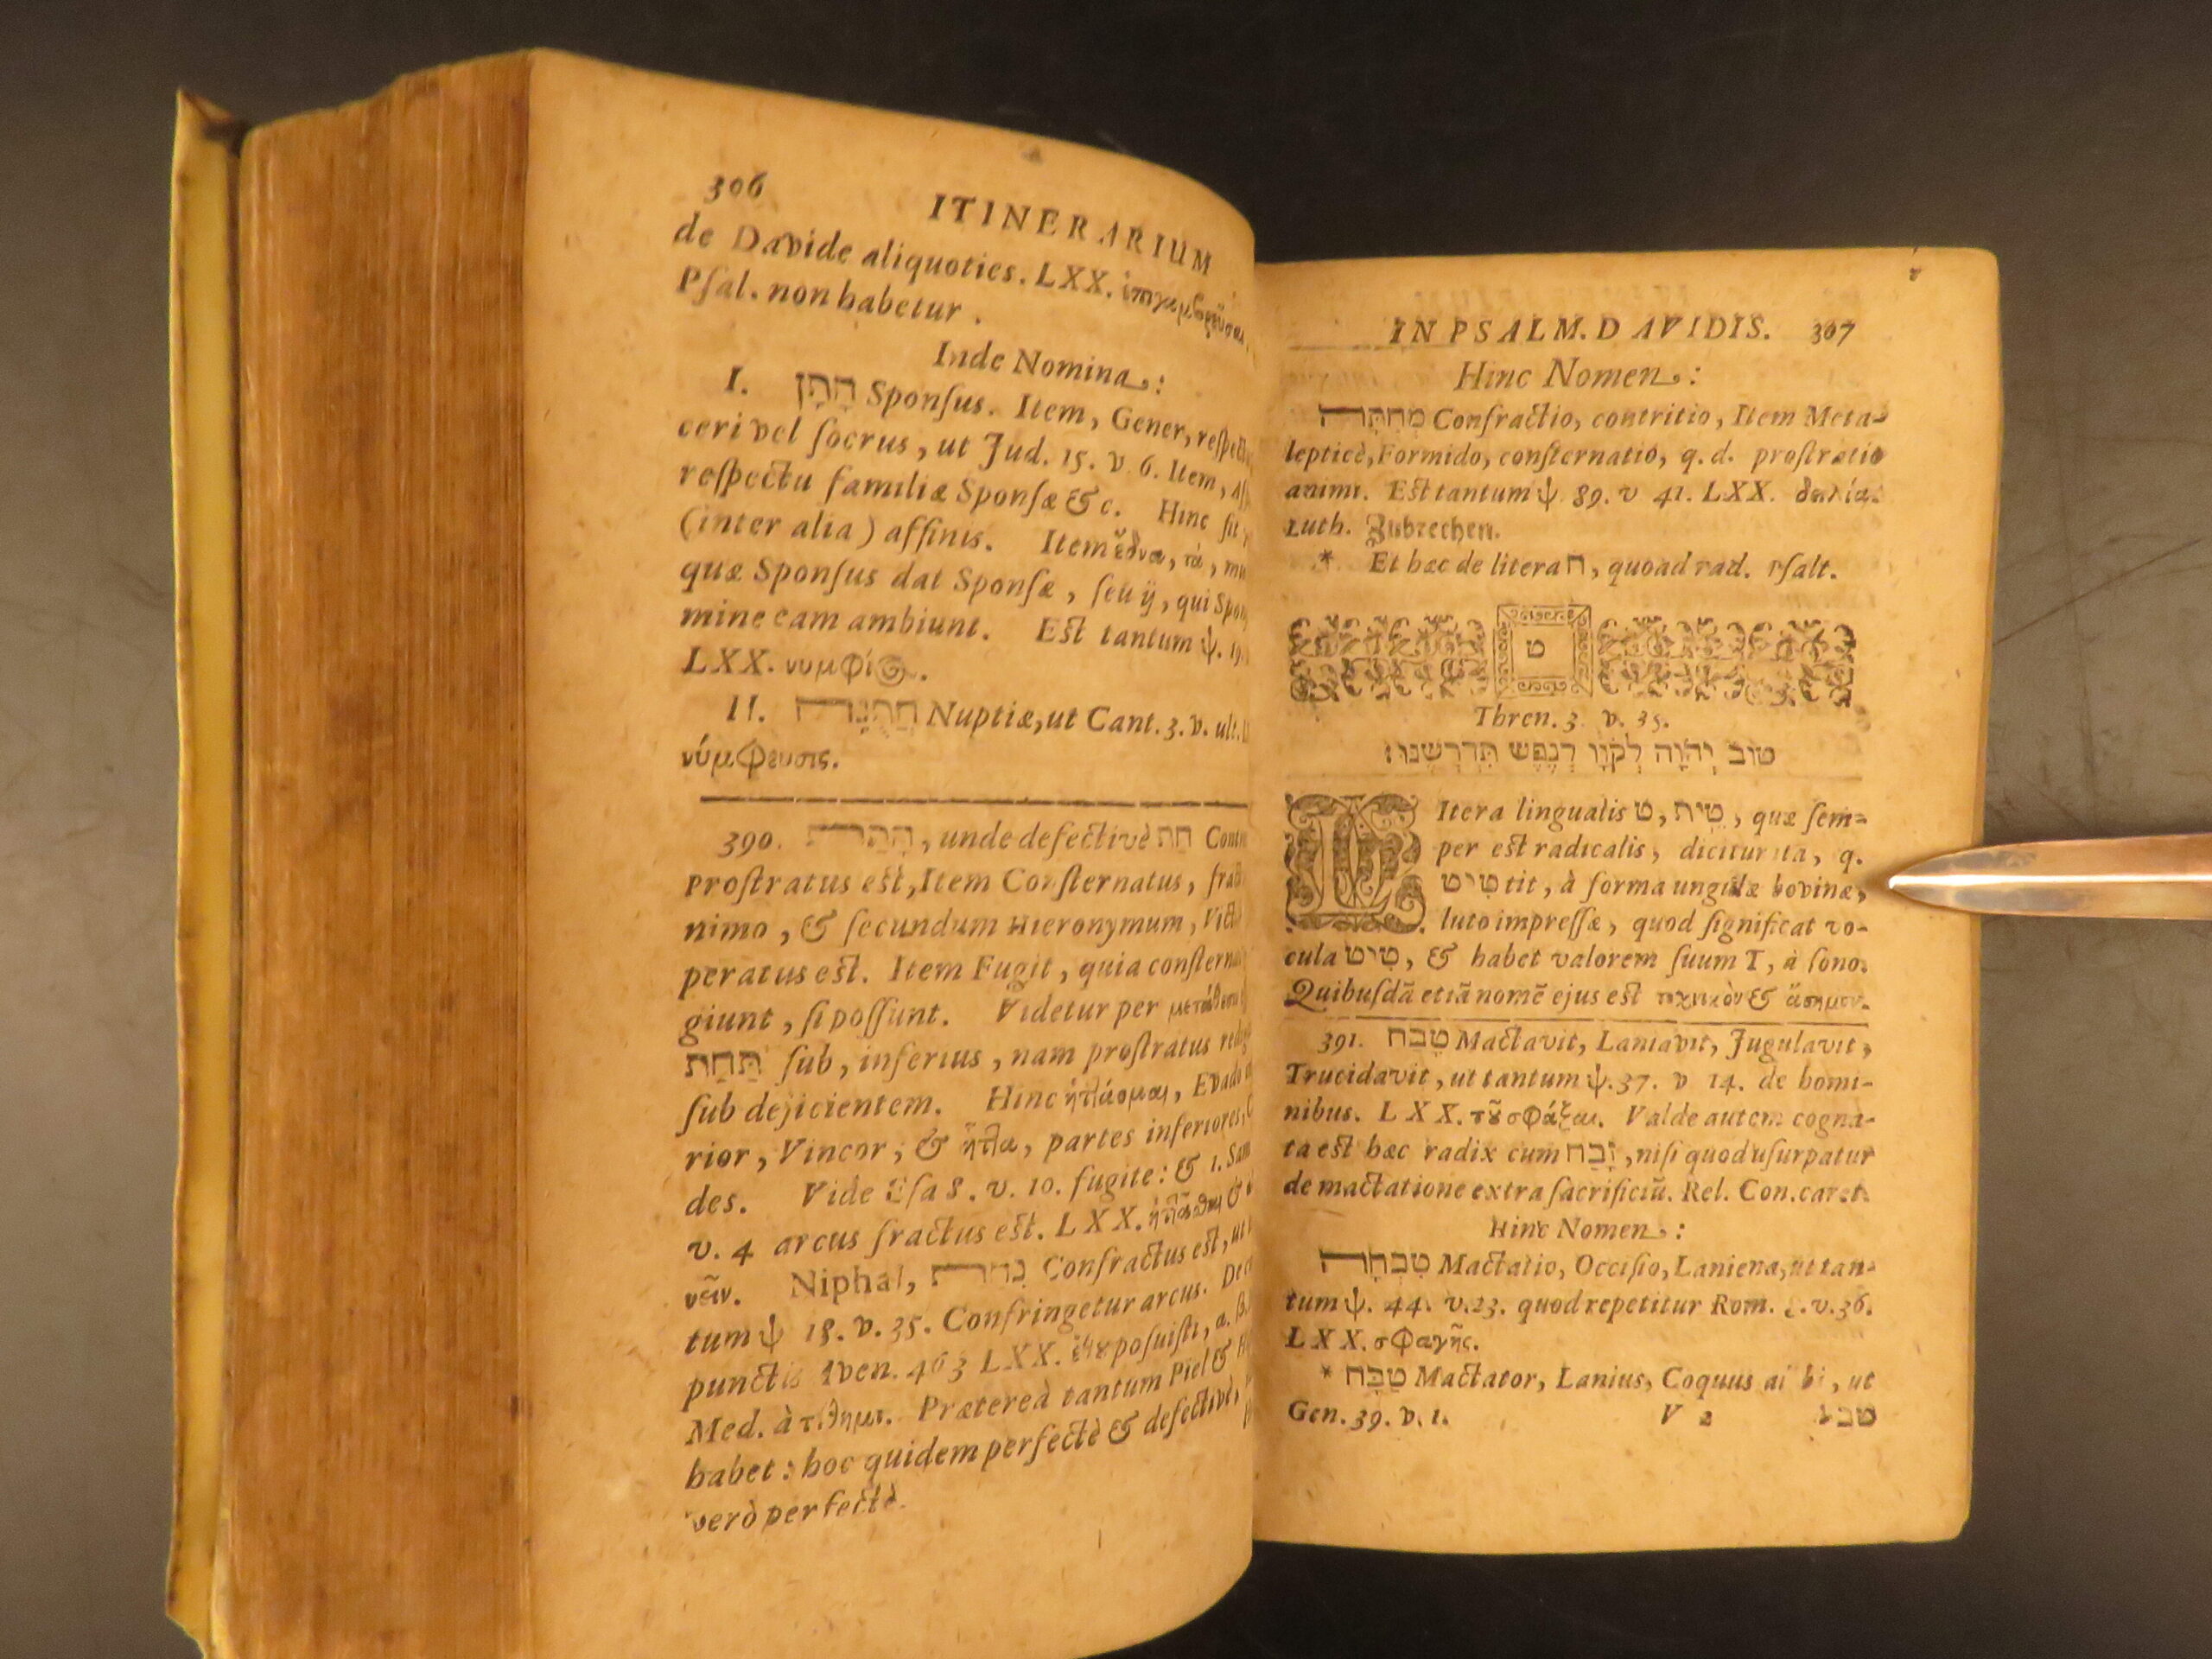 306 ITINERARIUM
de Davide aliquoties. LXX.
Psal. non habetur.
Inde Nomina:
I. חָתָן Sponsus. Item, Gener,
ceri vel socrus, ut Jud. 15. v. 6. Item,
respectu familiæ Sponsæ &c. Hinc
(inter alia) affinis. Item ἕδνα, τὰ,
quæ Sponsus dat Sponsæ, seu ij, qui
mine eam ambiunt. Est tantum ψ.
LXX. νυμφίος.
II. חֲתֻנָּה Nuptiæ, ut Cant. 3. v. ult.
νύμφευσις.
390. , unde defectivè חַת
Prostratus est, Item Consternatus,
nimo, & secundum Hieronymum,
peratus est. Item Fugit, quia
giunt, si possunt. Videtur per
תַּחַת sub, inferius, nam prostratus
sub dejicientem. Hinc ἡττάομαι,
rior, Vincor, & ἧττα, partes inferiores,
des. Vide Esa 8. v. 10. fugite: & 1. Sam
v. 4 arcus fractus est. LXX.
Niphal, Confractus est,
tum ψ 18. v. 35. Confringetur arcus.
punctis Aben. 463 LXX. posuisti, a.
Med. à τίθημι. Prætereà tantum Piel &
habet: hoc quidem perfectè & defectivè,
verò perfectè.
IN PSALM. DAVIDIS. 307
Hinc Nomen:
מְחִתָּה Confractio, contritio, Item Meta-
lepticè, Formido, consternatio, q. d. prostratio
animi. Est tantum ψ. 89. v 41. LXX. δειλία.
Luth. Zubrechen.
* Et hæc de litera ח, quoad rad. Psalt.
ט
Thren. 3. v. 35.
טוֹב יְהֹוָה לְקֹוָו לְנֶפֶשׁ תִּדְרְשֶׁנּוּ׃
LItera lingualis ט, טֵית, quæ sem-
per est radicalis, dicitur ita, q.
טִיט tit, à forma ungulæ bovinæ,
luto impressæ, quod significat vo-
cula טִיט, & habet valorem suum T, à sono.
Quibusdā etiā nomē ejus est τεχνικὸν & ἄσημον.
391. טָבַח Mactavit, Laniavit, Jugulavit,
Trucidavit, ut tantum ψ. 37. v 14. de homi-
nibus. LXX. τοῦ σφάξαι. Valde autem cogna-
ta est hæc radix cum זָבַח, nisi quod usurpatur
de mactatione extra sacrificiū. Rel. Con. caret.
Hinc Nomen:
טִבְחָה Mactatio, Occisio, Laniena, ut tan-
tum ψ. 44. v. 23. quod repetitur Rom. v. 36.
LXX. σφαγῆς.
* טַבָּח Mactator, Lanius, Coquus , ut
Gen. 39. v. 1. V 2 טבל